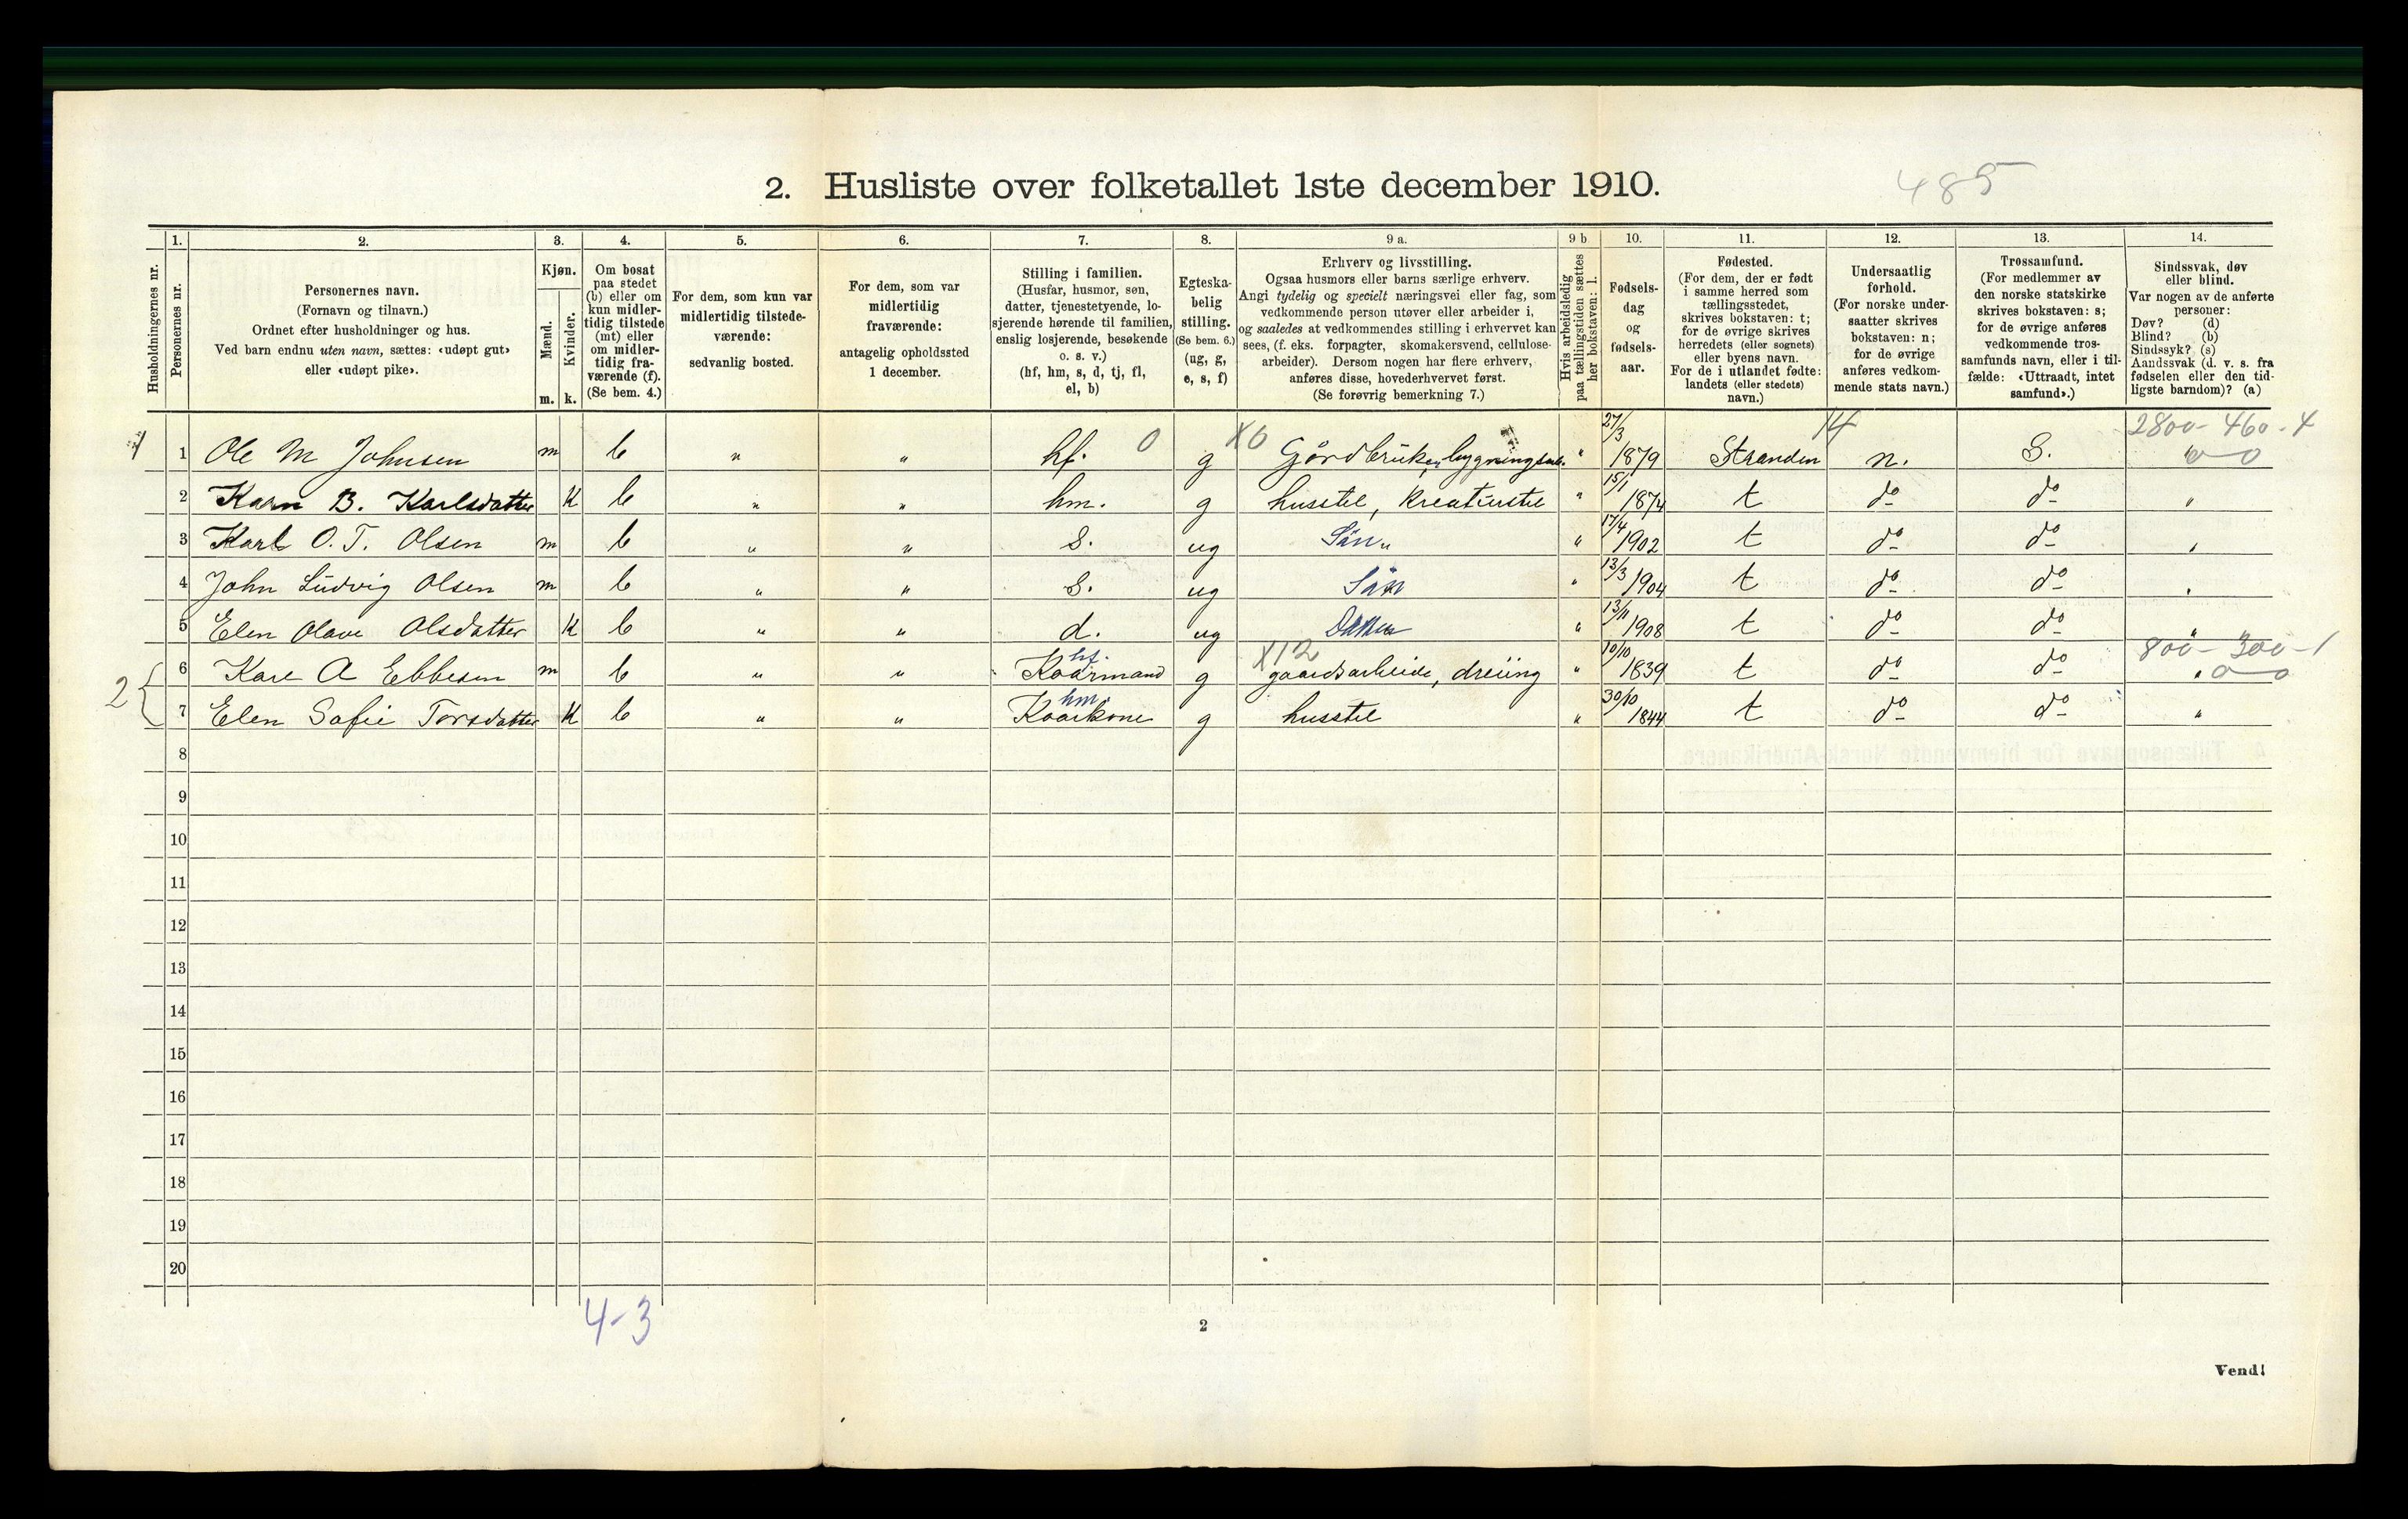 2. Husliste over folketallet 1ste december 1910.
485
Husholdningernes nr.
1. Personernes nr.
2. Personernes navn.
(Fornavn og tilnavn.)
Ordnet efter husholdninger og hus.
Ved barn endnu uten navn, sættes: «udøpt gut»
eller «udøpt pike».
3. Kjøn.
Mænd. m.
Kvinder. k.
4. Om bosat
paa stedet
(b) eller om
kun midler-
tidig tilstede
(mt) eller
om midler-
tidig fra-
værende (f).
(Se bem. 4.)
5. For dem, som kun var
midlertidig tilstede-
værende:
sedvanlig bosted.
6. For dem, som var
midlertidig
fraværende:
antagelig opholdssted
1 december.
7. Stilling i familien.
(Husfar, husmor, søn,
datter, tjenestetyende, lo-
sjerende hørende til familien,
enslig losjerende, besøkende
o. s. v.)
(hf, hm, s, d, tj, fl,
el, b)
8. Egteska-
belig
stilling.
(Se bem. 6.)
(ug, g,
e, s, f)
9 a. Erhverv og livsstilling.
Ogsaa husmors eller barns særlige erhverv.
Angi tydelig og specielt næringsvei eller fag, som
vedkommende person utøver eller arbeider i,
og saaledes at vedkommendes stilling i erhvervet kan
sees, (f. eks. forpagter, skomakersvend, cellulose-
arbeider). Dersom nogen har flere erhverv,
anføres disse, hovederhvervet først.
(Se forøvrig bemerkning 7.)
9 b Hvis arbeidsledig
paa tællingstiden sættes
her bokstaven: l.
10. Fødsels-
dag
og
fødsels-
aar.
11. Fødested.
(For dem, der er født
i samme herred som
tællingsstedet,
skrives bokstaven: t;
for de øvrige skrives
herredets (eller sognets)
eller byens navn.
For de i utlandet fødte:
landets (eller stedets)
navn.)
12. Undersaatlig
forhold.
(For norske under-
saatter skrives
bokstaven: n;
for de øvrige
anføres vedkom-
mende stats navn.)
13. Trossamfund.
(For medlemmer av
den norske statskirke
skrives bokstaven: s;
for de øvrige anføres
vedkommende tros-
samfunds navn, eller i til-
fælde: «Uttraadt, intet
samfund».)
14. Sindssvak, døv
eller blind.
Var nogen av de anførte
personer:
Døv? (d)
Blind? (b)
Sindssyk? (s)
Aandssvak (d. v. s. fra
fødselen eller den tid-
ligste barndom)? (a)
0 X0 14 2800-460-4
1 1 Ole M Johnsen m b " " hf. g Gårdbruker, bygningsarb. " 27/3 1879 Stranden n. S. "
2 Karn B. Karlsdatter K b " " hm. g husstel, kreaturstel " 15/1 1874 t do do "
3 Karl O. T. Olsen m b " " S. ug Sön " 17/4 1902 t do do "
4 John Ludvig Olsen m b " " S. ug Sön " 13/3 1904 t do do "
5 Elen Olave Olsdatter K b " " d. ug " 13/11 1908 t do do "
hf. X12 800-300-1
2 6 Karl A Ebbesen m b " " Kaarmand g gaardsarbeide, dreiing " 10/10 1839 t do do "
hm.
7 Elen Sofie Torsdatter K b " " Kaarkone g husstel " 30/10 1844 t do do "
8
9
10
11
12
13
14
15
16
17
18
19
20
4-3
2
Vend!